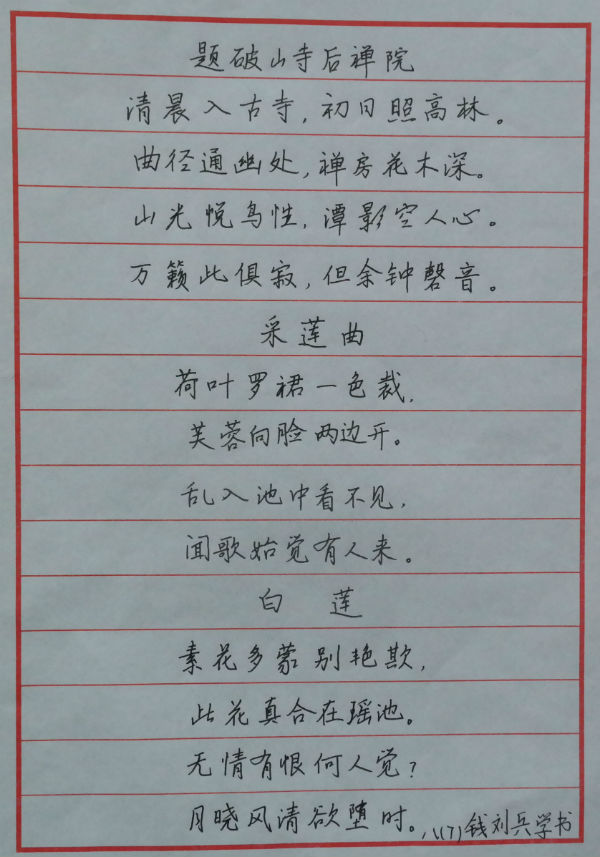 题破山寺后禅院
清晨入古寺，初日照高林。
曲径通幽处，禅房花木深。
山光悦鸟性，潭影空人心。
万籁此俱寂，但余钟磬音。
采莲曲
荷叶罗裙一色裁，
芙蓉向脸两边开。
乱入池中看不见，
闻歌始觉有人来。
白 莲
素花多蒙别艳欺，
此花真合在瑶池。
无情有恨何人觉？
月晓风清欲堕时。
八(7)钱刘兵学书